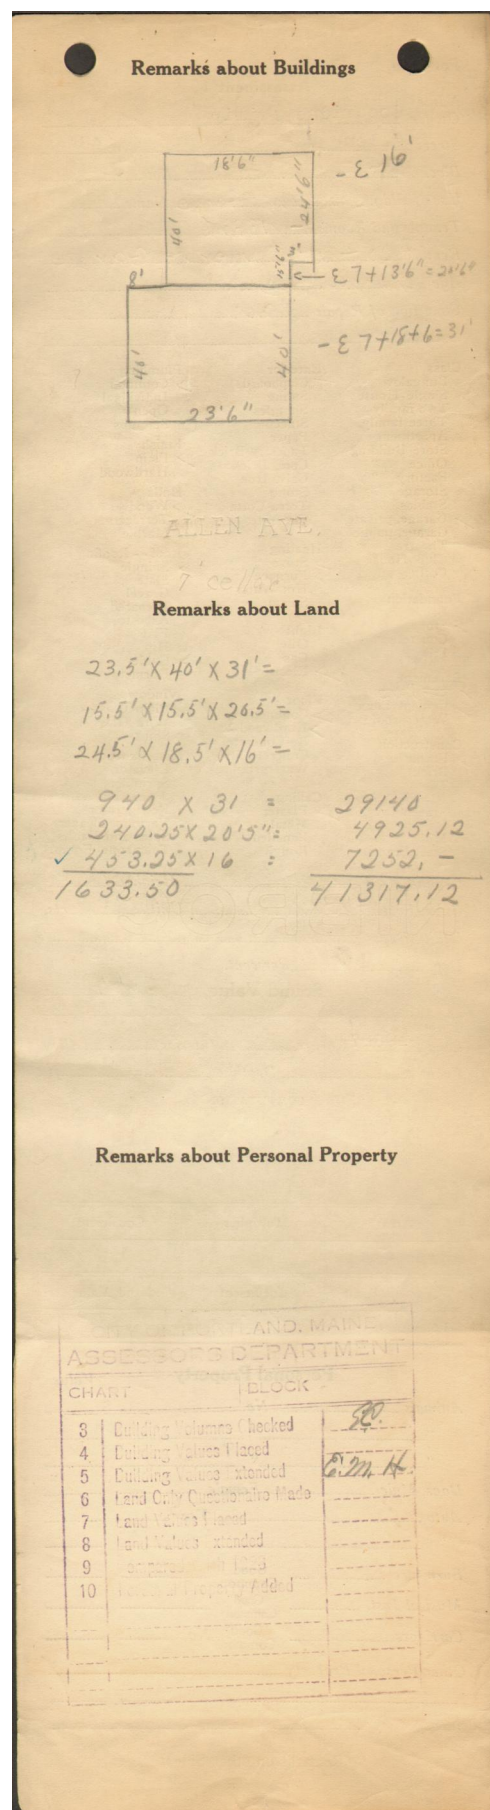 Remarks about Buildings
18'6"
24'6"
3 16'
40'
15'6"
3'
8'
3 7+13'6" = 20'6"
40'
40'
3 7+18+6=31'
23'6"
ALLEN AVE.
7' cellar
Remarks about Land
23.5' X 40' X 31' =
15.5' X 15.5' X 20.5' =
24.5' X 18.5' X 16' =
940 X 31 = 29140
240.25 X 20'5": 4925.12
✓ 453.25 X 16 : 7252.-
1633.50 41317.12
Remarks about Personal Property
LAND, MAINE
ASSESSORS DEPARTMENT
CHART BLOCK
3 Building Volumes Checked
4 Building Values Placed
5 Building Values Extended E.M.H.
6 Land Only Questionaire Made
7 Land Values Placed
8 Land Values Extended
9
10 Personal Property Added